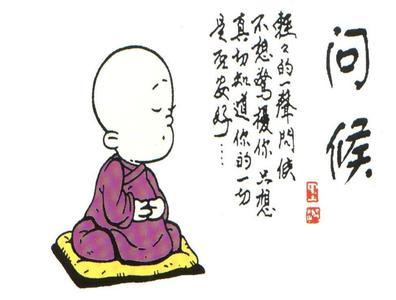 问候
轻々的一聲問候
不想驚擾你只想
真切知道你的一切
是否安好……